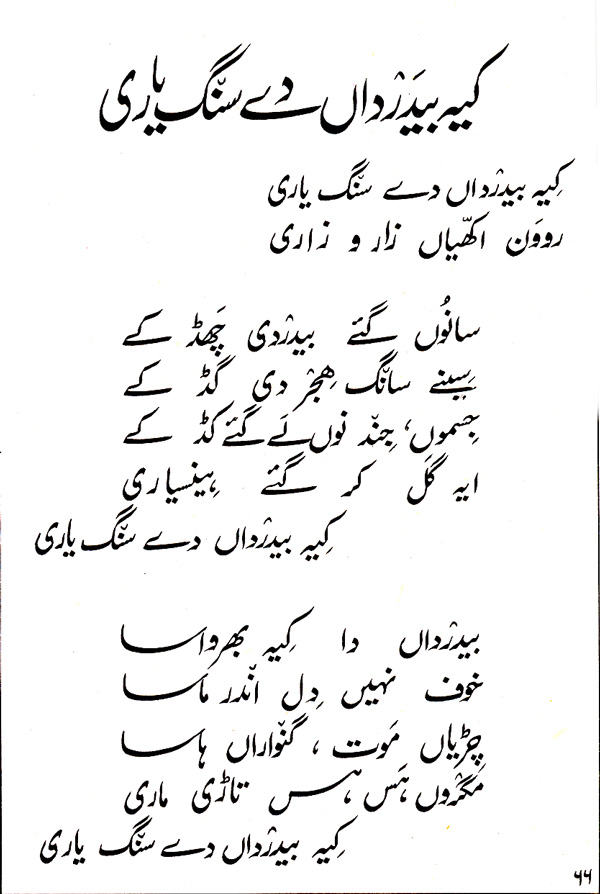 کیہ بیدَرْداں دے سنّگ یاری
کِیہ بیدرْداں دے سنّگ یاری
رووَن اکھّیاں زار و زاری
سانُوں گئے بیدرْدی چَھڈ کے
سِینے سانّگ ہِجْر دی گَڈ کے
جِسموں، جِنّد نوں لَے گئے کڈ کے
ایہ گَل کر گئے ہِینسیاری
کِیہ بیدرْداں دے سنّگ یاری
بیدرْداں دا کِیہ بھرواسا
خوف نہیں دِل انّدر ماسا
چِڑیاں مَوت، گنّواراں ہاسا
مگرْوں ہَس ہَس تاڑی ماری
کِیہ بیدرْداں دے سنّگ یاری
۶۶